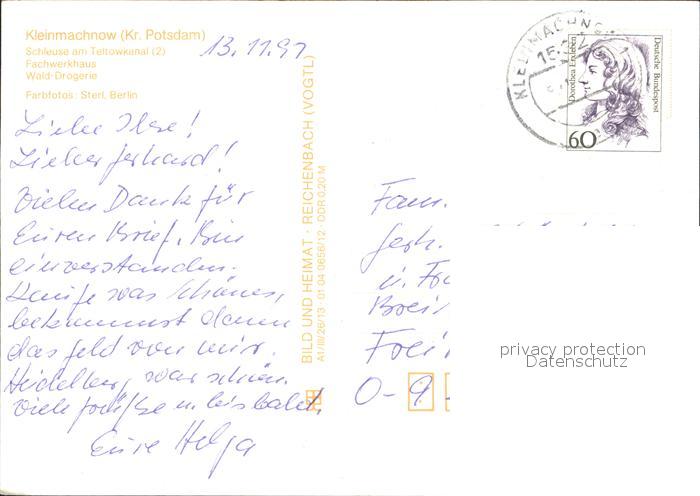 Kleinmachnow (Kr. Potsdam)
Schleuse am Teltowkanal (2)
Fachwerkhaus
Wald-Drogerie
Farbfotos: Sterl, Berlin
13.11.91
Liebe Ilse!
Lieber Gerhard!
Vielen Dank für
Euren Brief. Bin
einverstanden.
Kaufe was Schönes,
bekommst dann
das Geld von mir.
Heidelberg war schön.
Viele Grüße u. bis bald,
Eure Helga
BILD UND HEIMAT · REICHENBACH (VOGTL)
A1/III/26/13 01 04 0656/12 DDR 0,20 M
KLEINMACHNOW
15.
Dorothea Erxleben
Deutsche Bundespost
60
Fam.
Gerh.
u.
Frei
O-9
privacy protection
Datenschutz